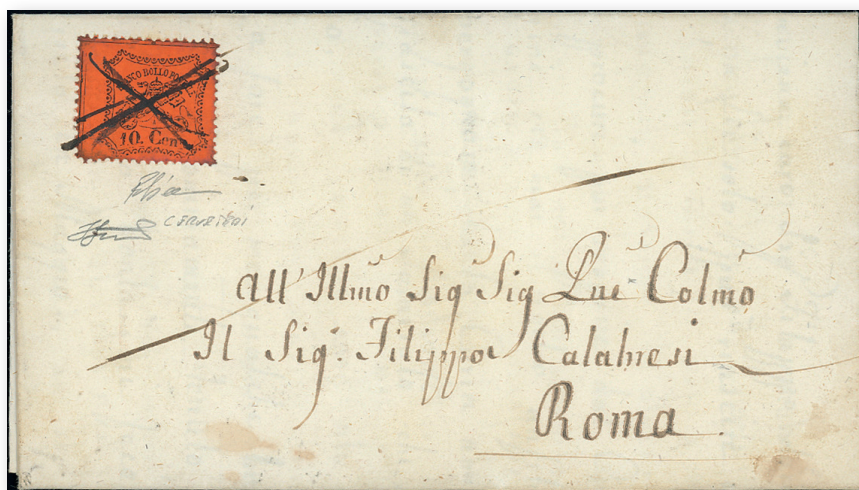 FRANCO BOLLO PO
10. Cen
CERVETERI
All' Illmo Sig Sig Pne Colmo
Il Sig.r Filippo Calabresi
Roma